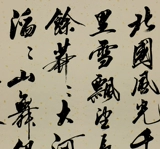 北國風光千
里雪飄望長
餘莽〻大河
滔〻山舞銀